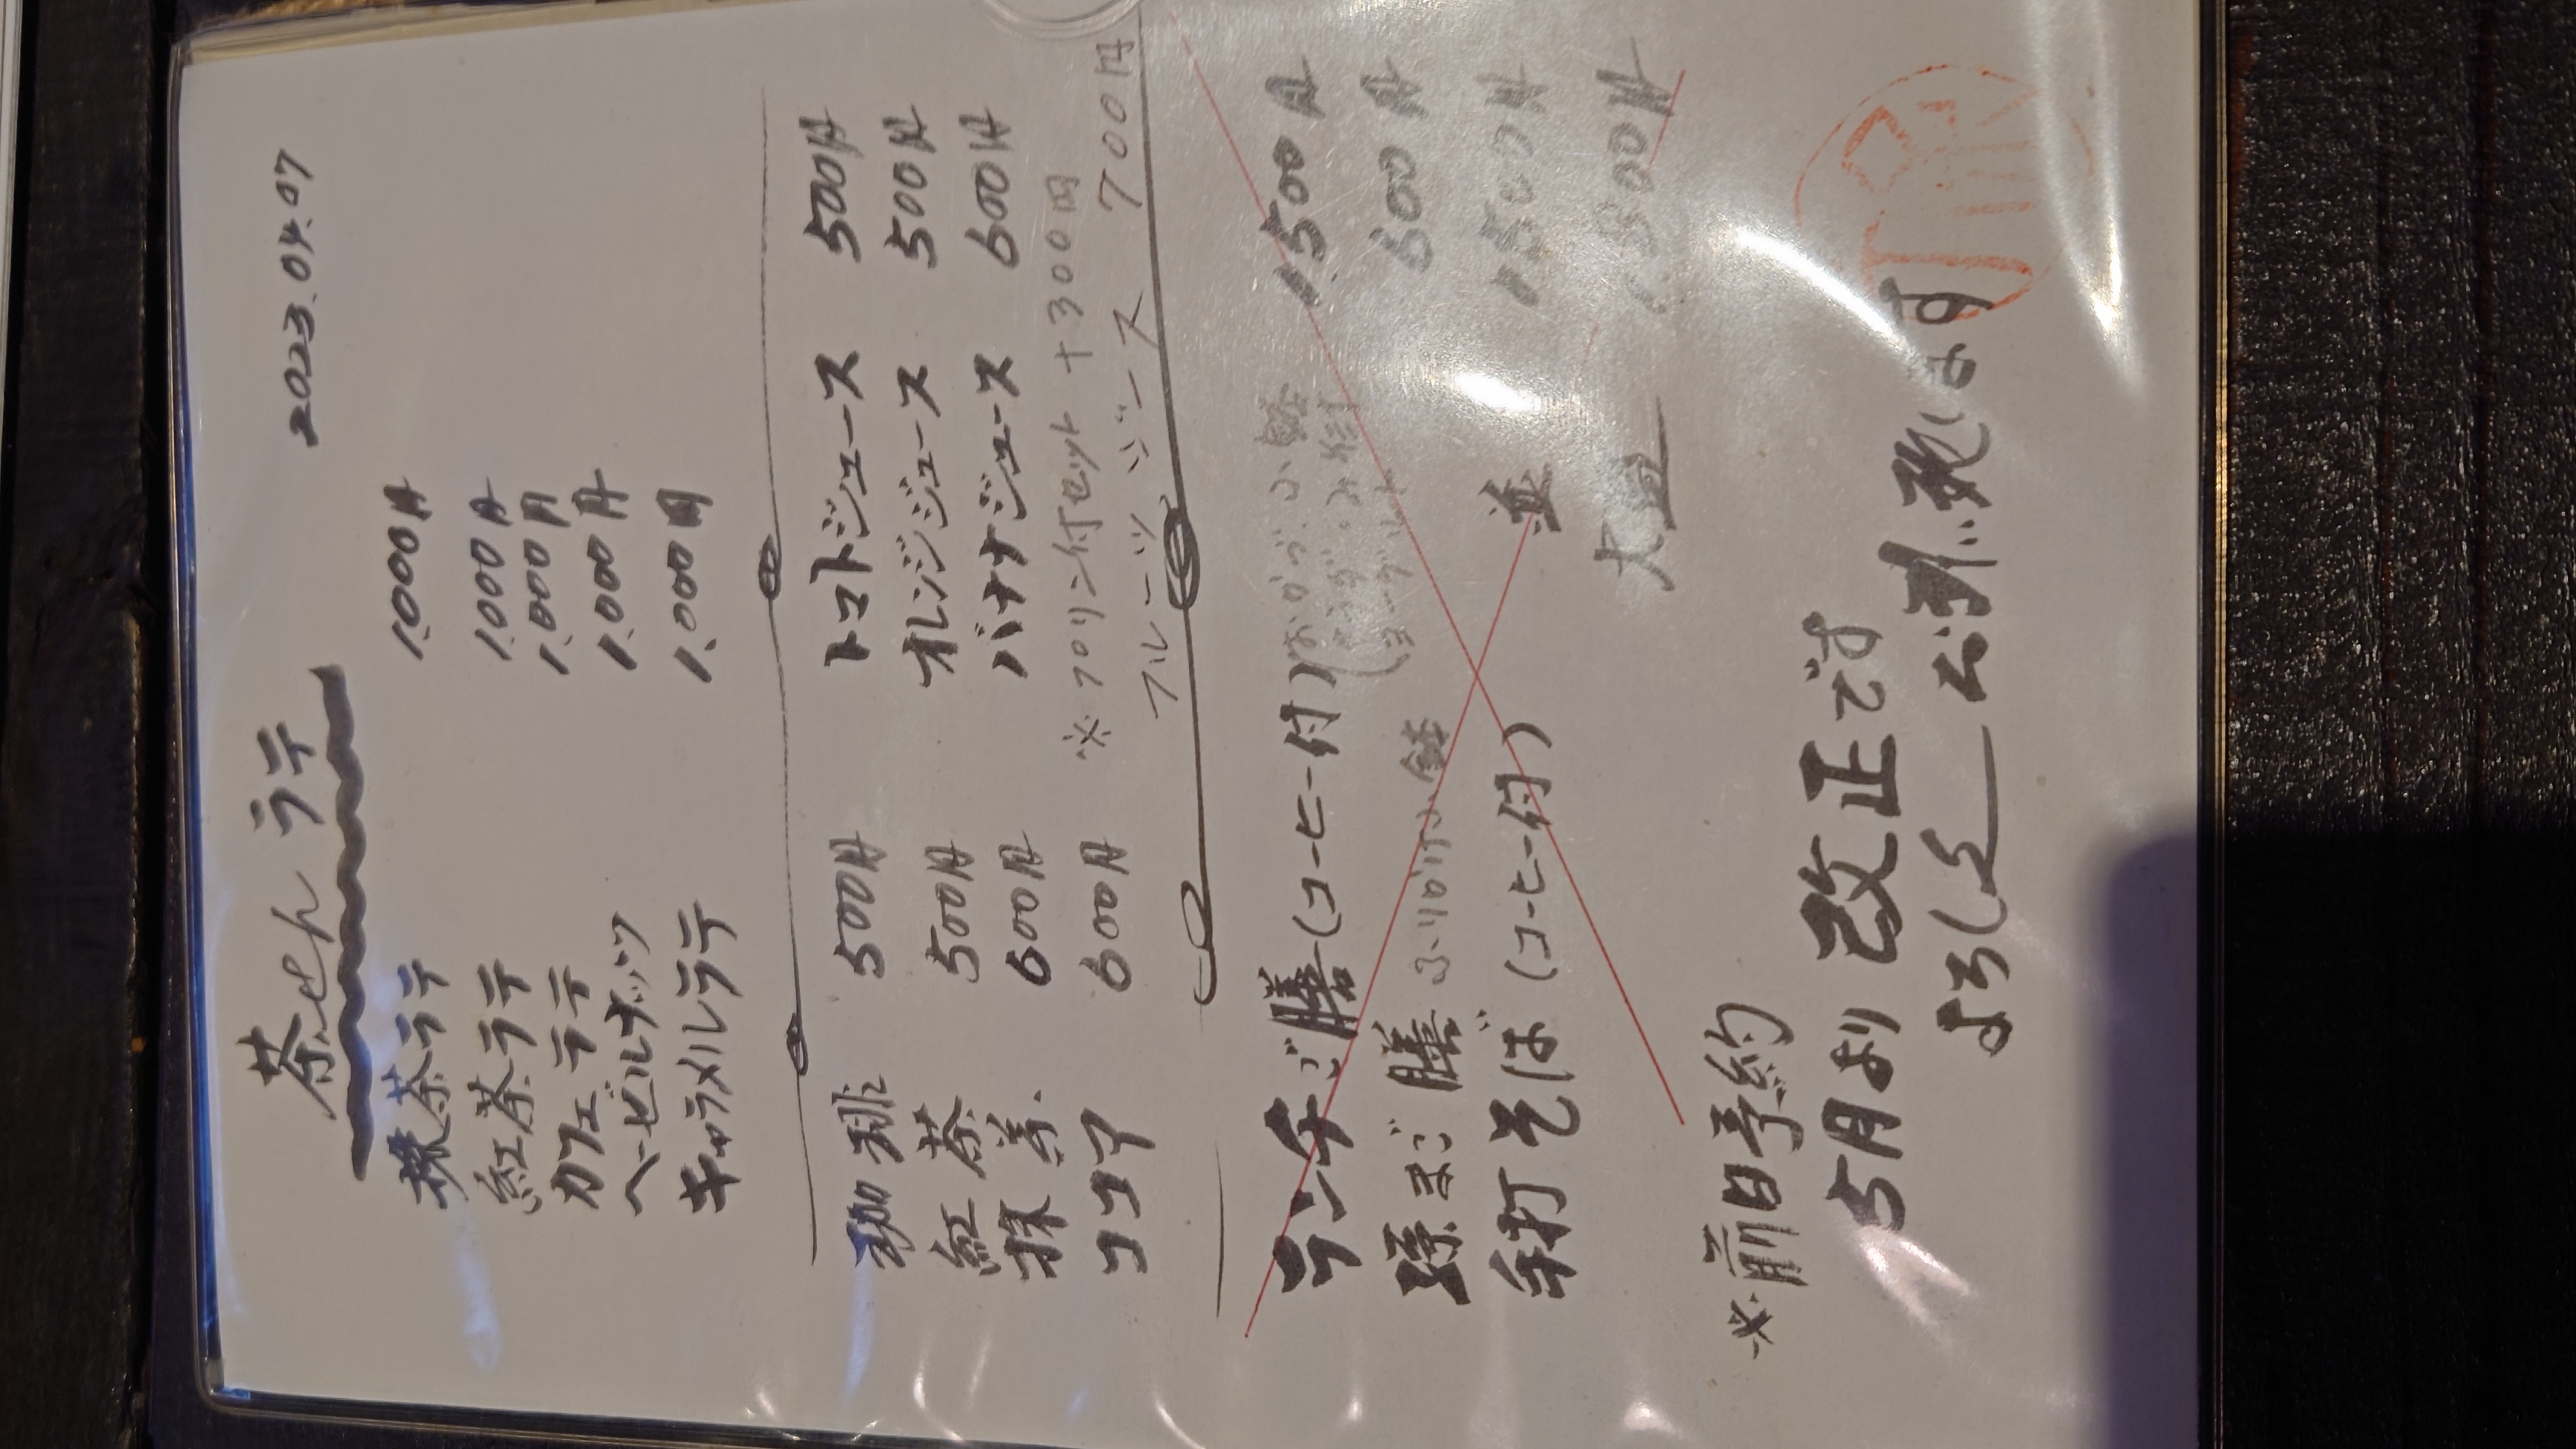 2023.04.07
茶せん ラテ
抹茶ラテ 1.000円
紅茶ラテ 1.000円
カフェラテ 1.000円
ヘーゼルナッツ 1.000円
キャラメルラテ 1.000円
珈琲 500円 トマトジュース 500円
紅茶 500円 オレンジジュース 500円
抹茶 600円 バナナジュース 600円
ココア 600円 ※プリン付セット +300円
フルーツソーダー 700円
ランチご膳(コーヒー付) 1.500円
孫まご膳 ふりがけ 600円
手打そば(コーヒー付) 並 1.500円
大皿
※前日予約
5月より 改正です
よろしくお引